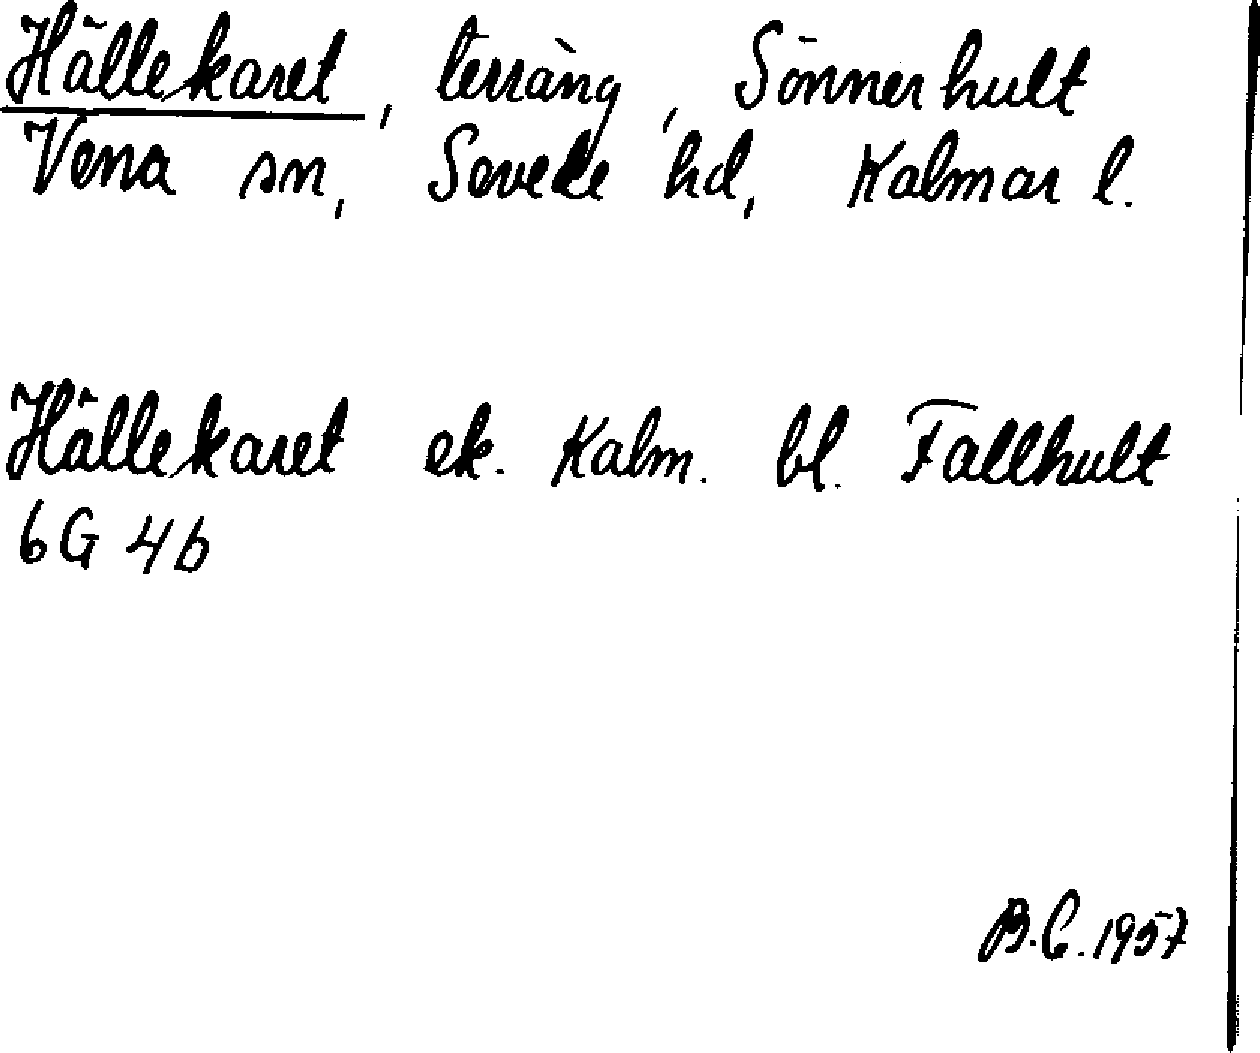 Hällekaret, terräng, Sönnerhult
Vena sn, Sevede hd, Kalmar l.
Hällekaret ek. Kalm. bl. Fallhult
6G 4b
B.C. 1957